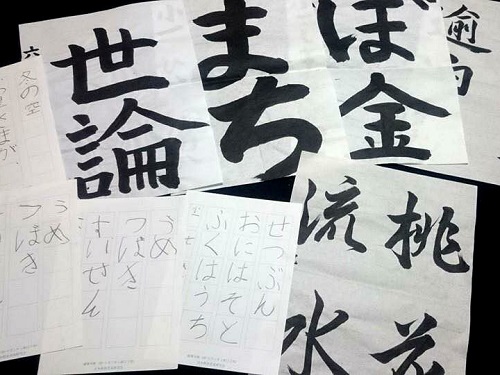 世論
まち
ぼ金
冬の空
うめ
つばき
うめ
つばき
すいせん
せつぶん
おにはそと
ふくはうち
桃花
流水